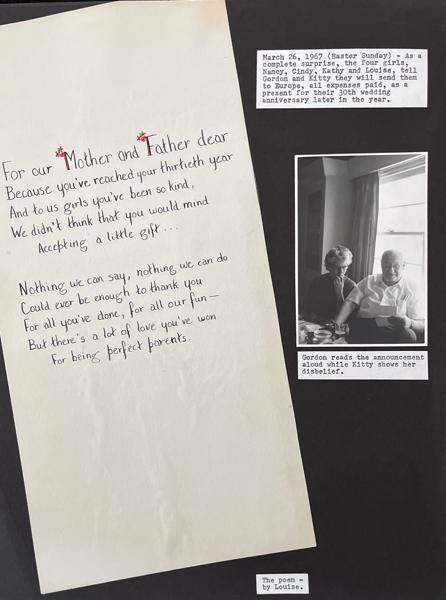 For our Mother and Father dear
Because you've reached your thirtieth year
And to us girls you've been so kind,
We didn't think that you would mind
Accepting a little gift...
Nothing we can say, nothing we can do
Could ever be enough to thank you
For all you've done, for all our fun—
But there's a lot of love you've won
For being perfect parents.
March 26, 1967 (Easter Sunday) - As a
complete surprise, the four girls,
Nancy, Cindy, Kathy and Louise, tell
Gordon and Kitty they will send them
to Europe, all expenses paid, as a
present for their 30th wedding
anniversary later in the year.
Gordon reads the announcement
aloud while Kitty shows her
disbelief.
The poem -
by Louise.